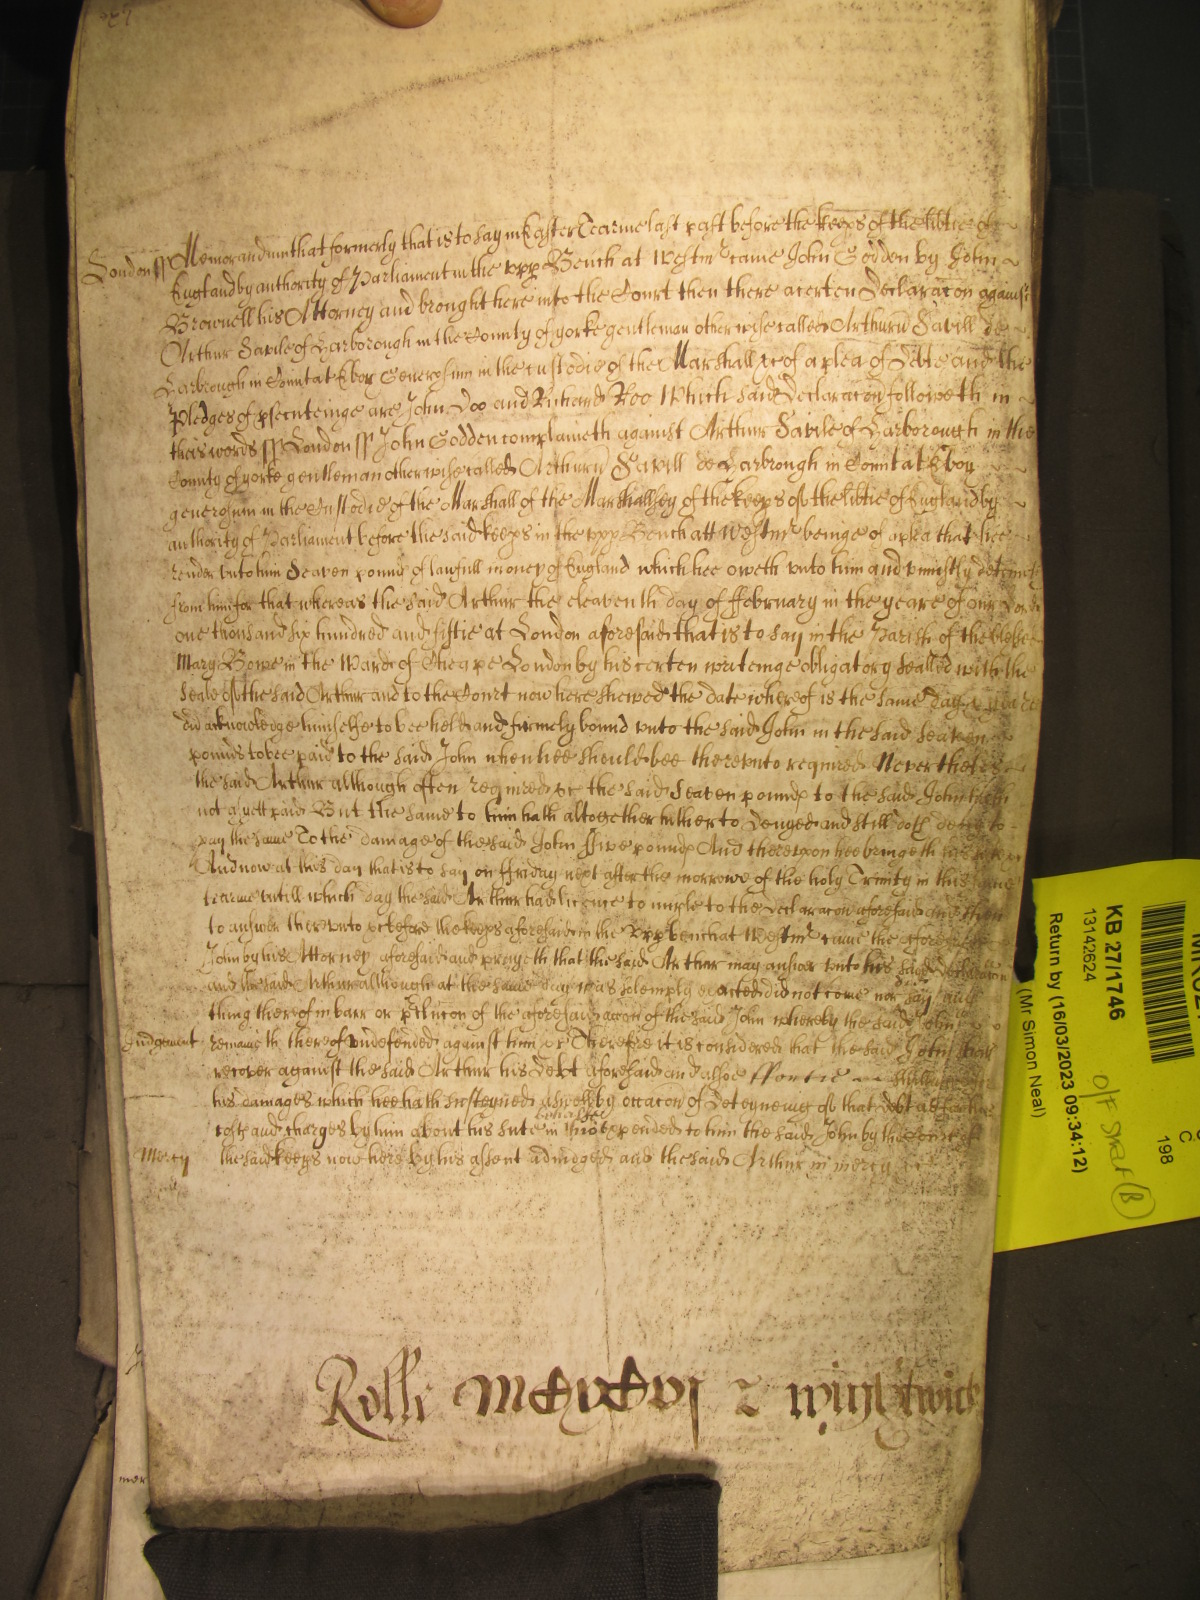 London ss Memorandum that formerly that is to say in Easter Tearme last past before the keeps of the libtie of
England by authority of Parliament in the upp Bench at Westmr came John Godden by John
Brownell his Attorney and brought here into the Court then there a certen Declaracon against
Arthur Savile of Harborough in the County of yorke gentleman otherwise called Arthuru Savill de
Harbrough in Comitat Ebor Generosum in the custodie of the Marshall &c of a plea of Debt and the
Pledges of psecuteinge are John Doo and Richard Roo Which said Declaracon followeth in
theis words ss London ss John Godden complaineth against Arthur Savile of Harborough in the
County of yorke gentleman otherwise called Arthuru Savill de Harbrough in Comitat Ebor
generosum in the Custodie of the Marshall of the Marshallsey of the keeps of the libtie of England by
authority of Parliament before the said keeps in the upp Bench att Westmr beinge of a plea that hee
render unto him Seaven pound of lawfull money of England which hee oweth unto him and uniustly
from him for that whereas the said Arthur the eleaventh day of ffebruary in the yeare of our Lord
one thousand six hundred and fiftie at London aforesaid that is to say in the Parish of the blessed
Mary Bowe in the Ward of Cheape London by his certen writeinge obligatory sealled with the
Seale of the said Arthur and to the Court now here shewed the date whereof is the same day &
did acknowledge himselfe to bee held and firmely bound unto the said John in the said seaven
pounds to bee paid to the said John when hee should bee thereunto required Neverthelesse
the said Arthur although often required &c the said Seaven pounds to the said John hath
not as yett paid But the same to him hath altogether hitherto denyed and still doth deny to
pay the same To the damage of the said John ffive pounds And thereupon hee bringeth his
And now at this day that is to say on ffriday next after the morrowe of the holy Trinity in this same
tearme untill which day the said Arthur had licence to imple to the Declaracon aforesaid and then
to answer thereunto &c before the keeps aforesaid in the upp bench at Westmr came the aforesaid
John by his Attorney aforesaid and prayeth that the said Arthur may answer unto his said Declaracon
and the said Arthur although at the same day was solemply exacted did not come nor say any
thing thereof in barr or pclucon of the aforesaid accon of the said John whereby the said John
Judgement remaineth thereof undefended against him &c Therefore it is considered that the said John
recover against the said Arthur his Debt aforesaid and allsoe ffortie
his damages which hee hath susteyned aswell by occacon of deteyneing of that debt as
costs and charges by him about his sute in expended to him the said John by the Court of
Mercy the said keeps now here by his assent adiudged and the said Arthur in mercy &c
Rolls
KB 27/1746
13142624
Return by (16/03/2023 09:34:12)
(Mr Simon Neal)
C
198
B